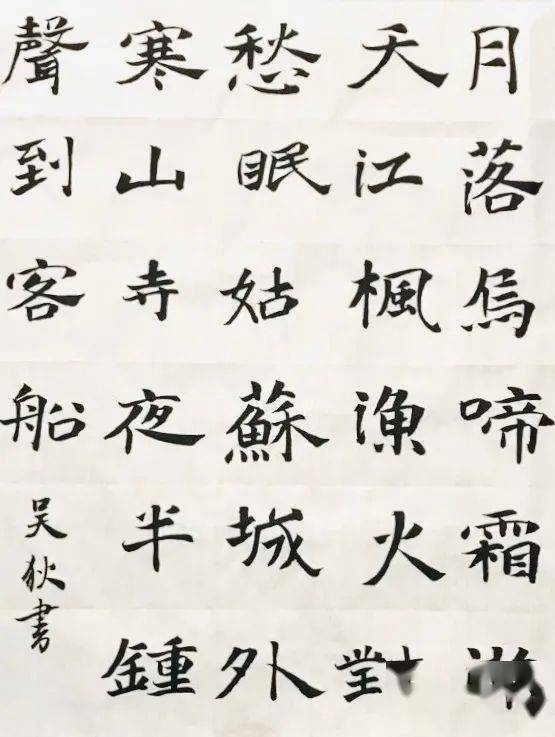 月落烏啼霜
天江楓漁火對
愁眠姑蘇城外
寒山寺夜半鍾
聲到客船
吳狄書